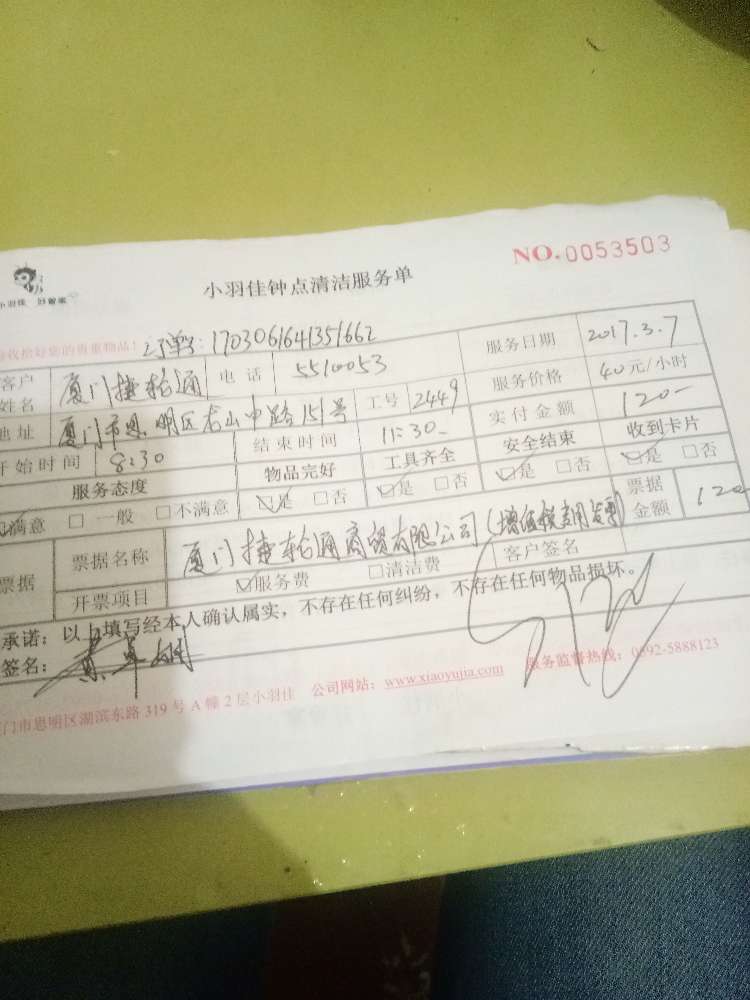 NO.0053503
小羽佳 好管家
小羽佳钟点清洁服务单
收拾好您的贵重物品! 订单: 1703061641351662
客户姓名 厦门捷轮通 电话 5510053 服务日期 2017.3.7
地址 厦门市思明区 中路151号 工号 2449 服务价格 40元/小时
开始时间 8:30 结束时间 11:30 实付金额 120-
服务态度 物品完好 工具齐全 安全结束 收到卡片
满意 □一般 □不满意 ☑是 □否 ☑是 □否 ☑是 □否 ☑是 □否
票据 票据名称 厦门捷轮通商贸有限公司(增值税专用发票) 票据金额 120
开票项目 ☑服务费 □清洁费 客户签名
承诺:以上填写经本人确认属实,不存在任何纠纷,不存在任何物品损坏。
签名:
门市思明区湖滨东路319号A幢2层小羽佳 公司网站:www.xiaoyujia.com 服务监督热线:0592-5888123